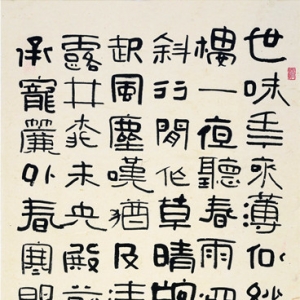 世味年來薄似紗
樓一夜聽春雨深
斜行閒作草晴窗
起風塵嘆猶及清
露井桃未央殿前
承寵簾外春寒